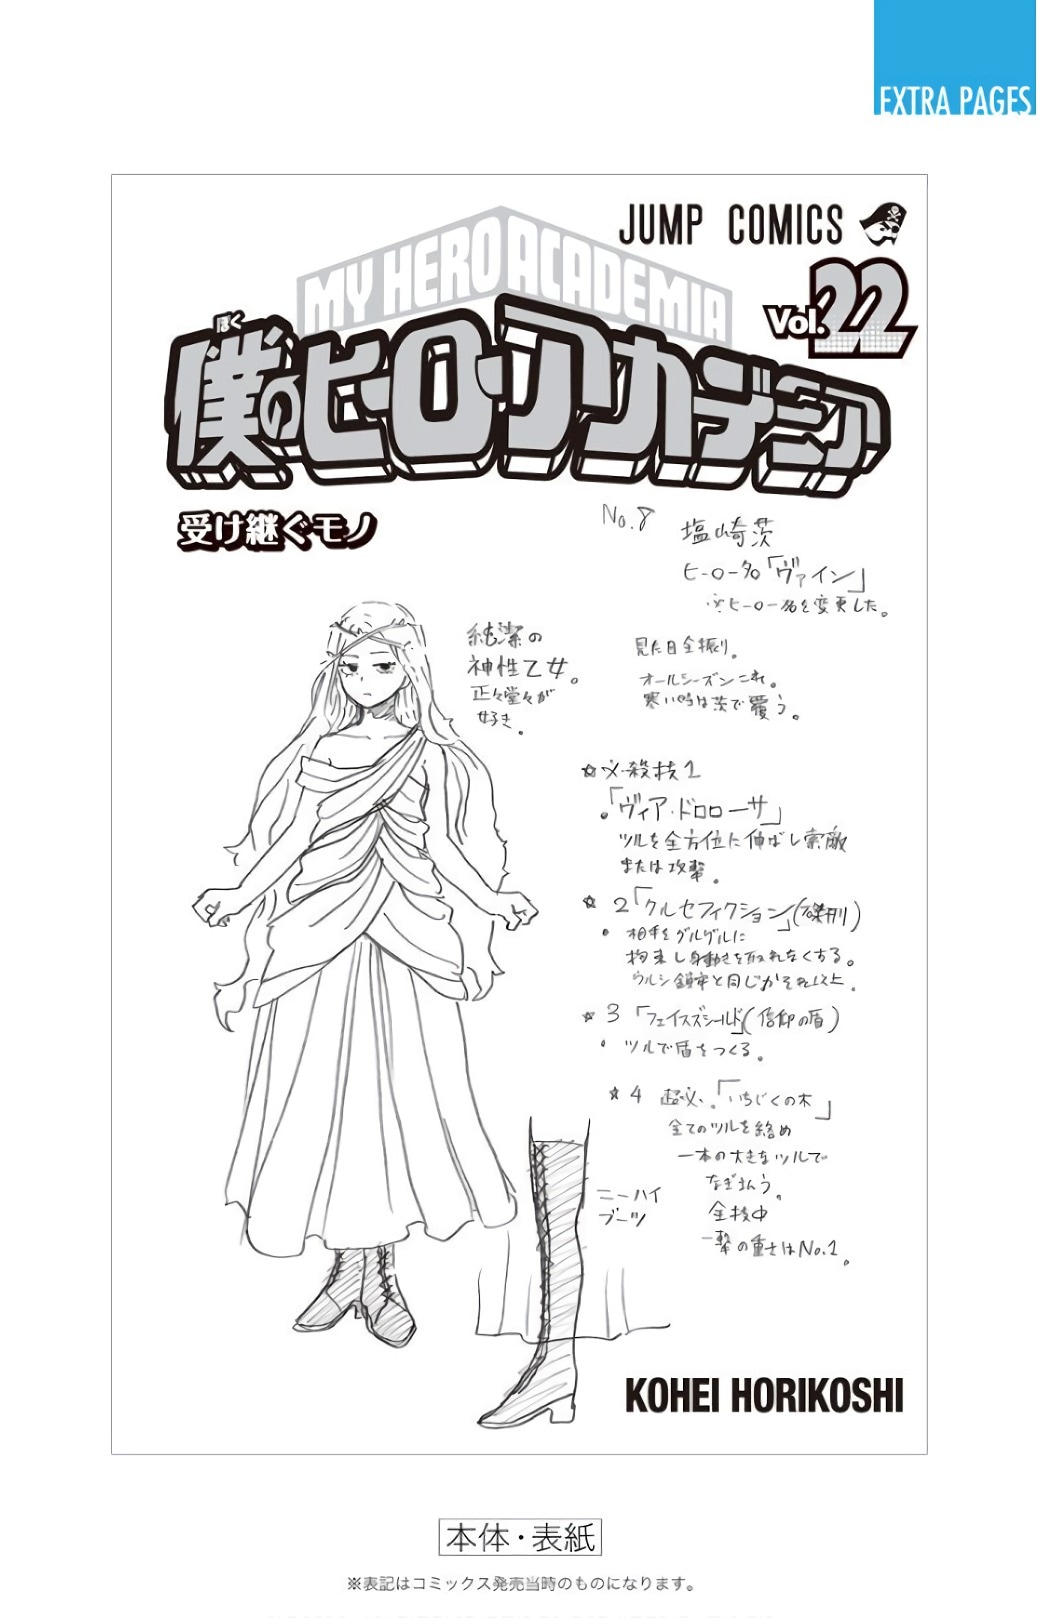 EXTRA PAGES
JUMP COMICS
MY HERO ACADEMIA
Vol.22
ぼく
僕のヒーローアカデミア
受け継ぐモノ
No.8
塩崎茨
ヒーロー名「ヴァイン」
※ヒーロー名を変更した。
純潔の
神性乙女。
正々堂々が
好き。
見た目全振り。
オールシーズンこれ。
寒い時は茨で覆う。
☆必殺技1
・「ヴィア・ドロローサ」
ツルを全方位に伸ばし索敵
または攻撃。
☆2「クルセフィクション」(磔刑)
・相手をグルグルに
拘束し身動きを取れなくする。
ウルシ鎖牢と同じかそれ以上。
☆3「フェイスズシールド」(信仰の盾)
・ツルで盾をつくる。
☆4 超必。「いちじくの木」
全てのツルを絡め
一本の大きなツルで
なぎ払う。
全技中
一撃の重さはNo.1。
ニーハイ
ブーツ
KOHEI HORIKOSHI
本体・表紙
※表記はコミックス発売当時のものになります。